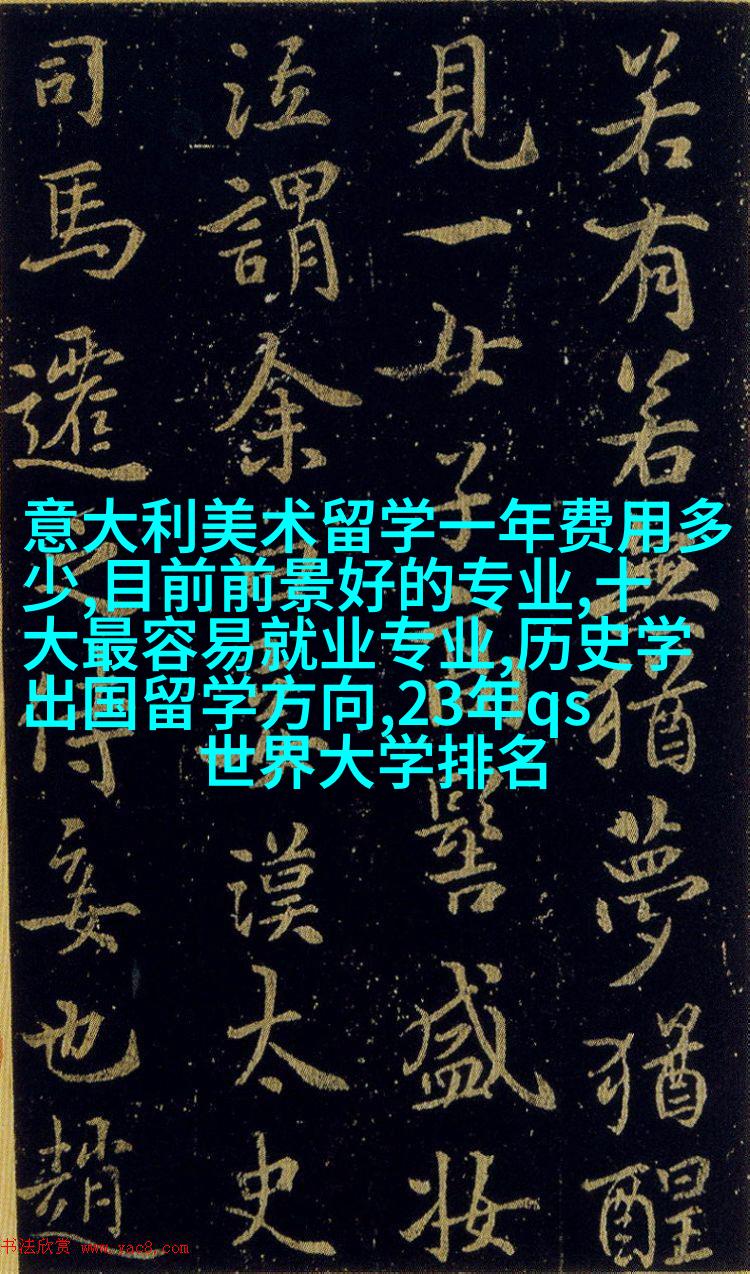 若有若無猶夢猶醒
見一女子高髻盛妝
泣謂余曰妾漢太史
司馬遷之侍妾也趙
意大利美术留学一年费用多
少,目前前景好的专业,十
大最容易就业专业,历史学
出国留学方向,23年qs
世界大学排名
书法欣赏 www.yac8.com